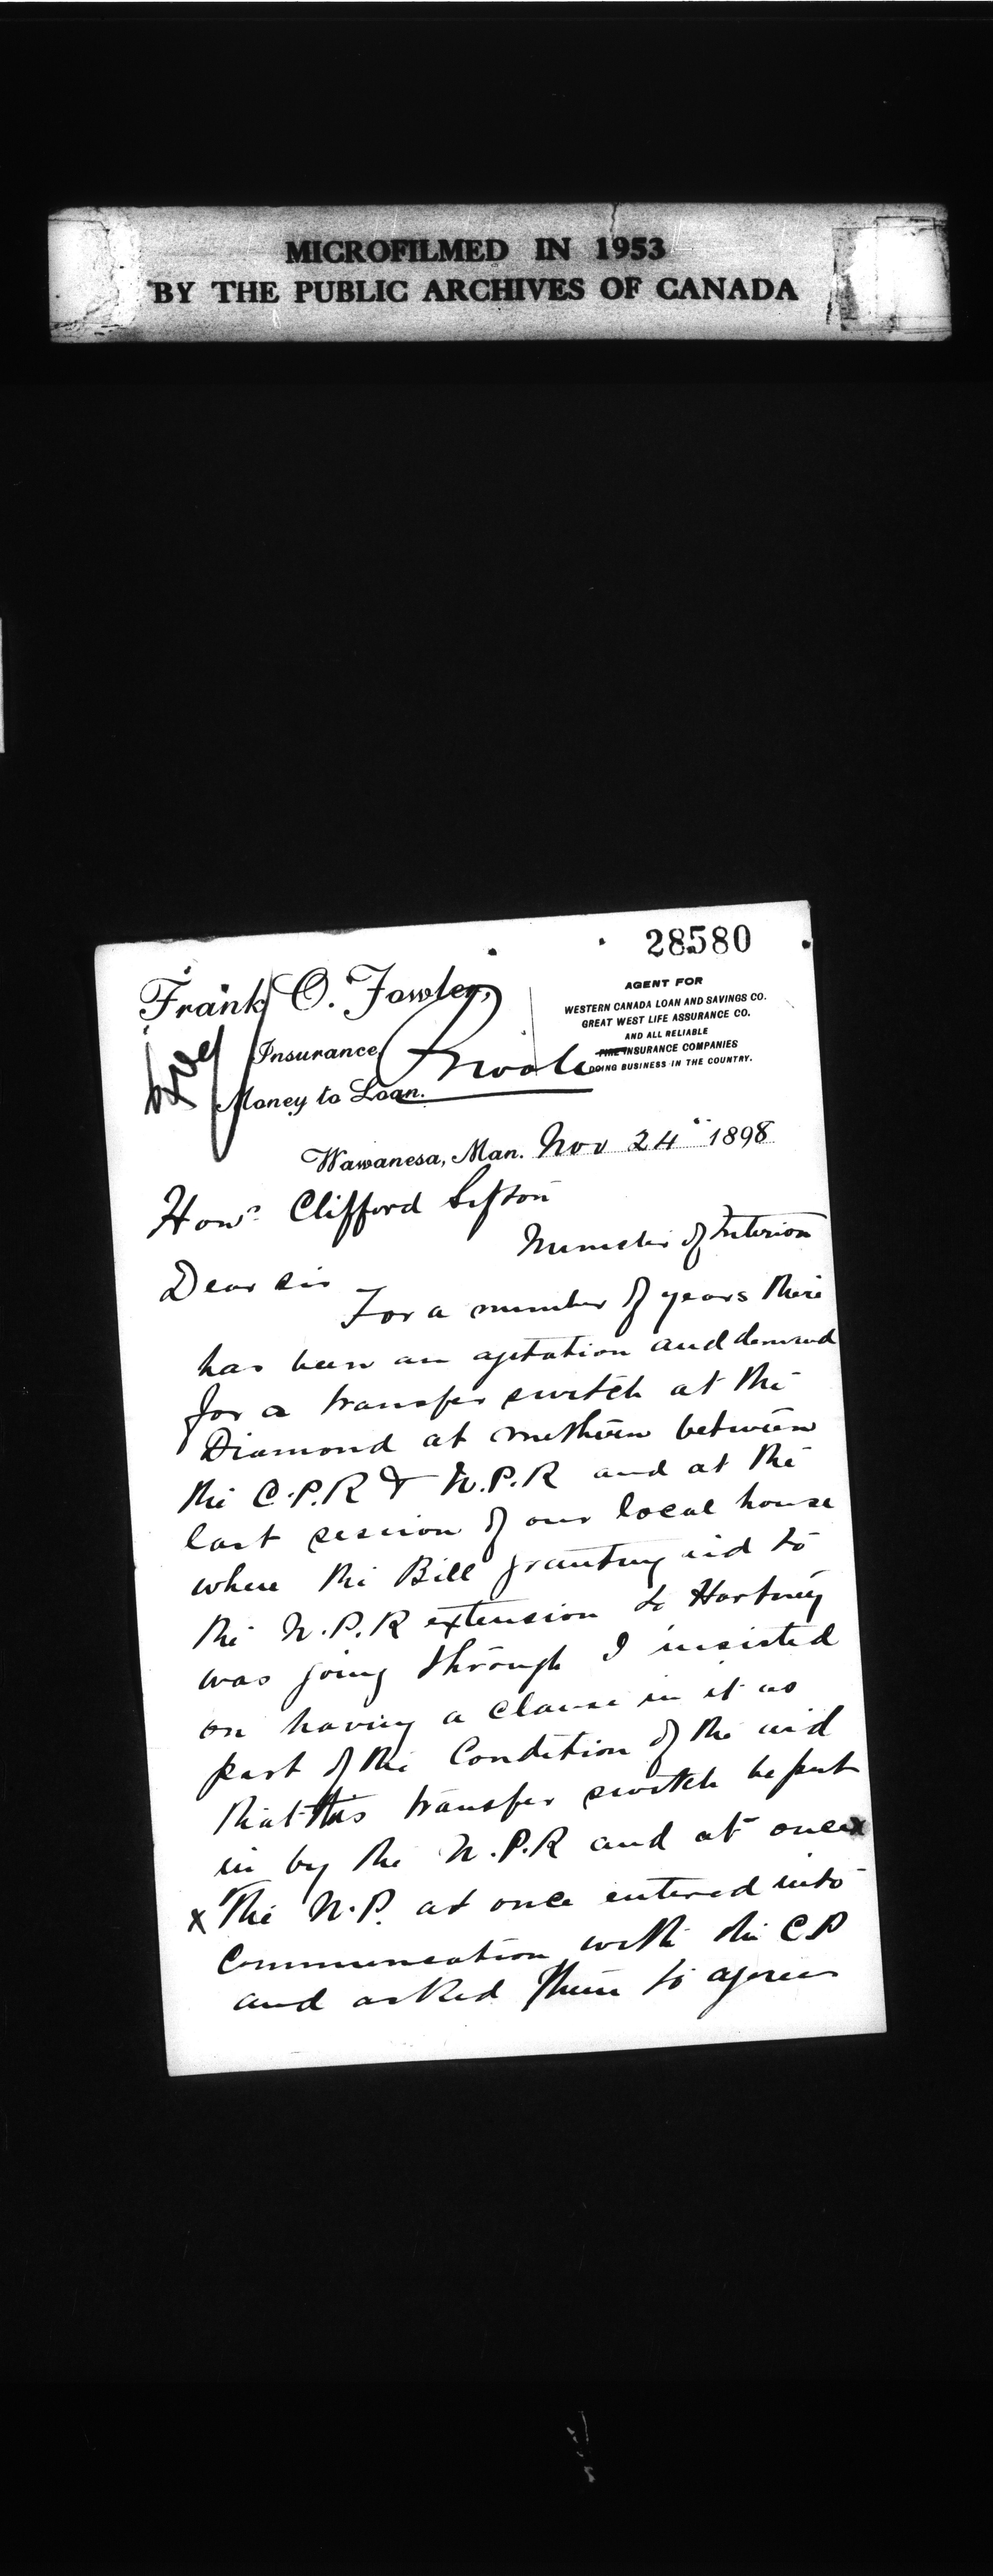 MICROFILMED IN 1953
BY THE PUBLIC ARCHIVES OF CANADA
28580
Frank O. Fowler,
Insurance
Money to Loan.
Private
AGENT FOR
WESTERN CANADA LOAN AND SAVINGS CO.
GREAT WEST LIFE ASSURANCE CO.
AND ALL RELIABLE
FIRE INSURANCE COMPANIES
DOING BUSINESS IN THE COUNTRY.
Wawanesa, Man. Nov 24" 1898
Hon. Clifford Sifton
Minister of Interior
Dear Sir
For a number of years there
has been an agitation and demand
for a transfer switch at the
Diamond at Methven between
the C.P.R & N.P.R and at the
last session of our local house
when the Bill granting aid to
the N.P.R extension to Hartney
was going through I insisted
on having a clause in it as
part of the Condition of the aid
that this transfer switch be put
in by the N.P.R and at once x
x The N.P. at once entered into
Communication with the C.P
and asked them to agree